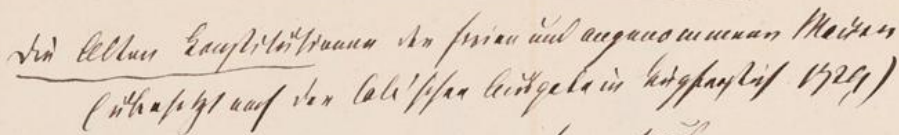 Die Alten Konstitutionen der freien und angenommenen Maurer
(übersetzt nach der Cole'schen Ausgabe in Kupferstich 1729)